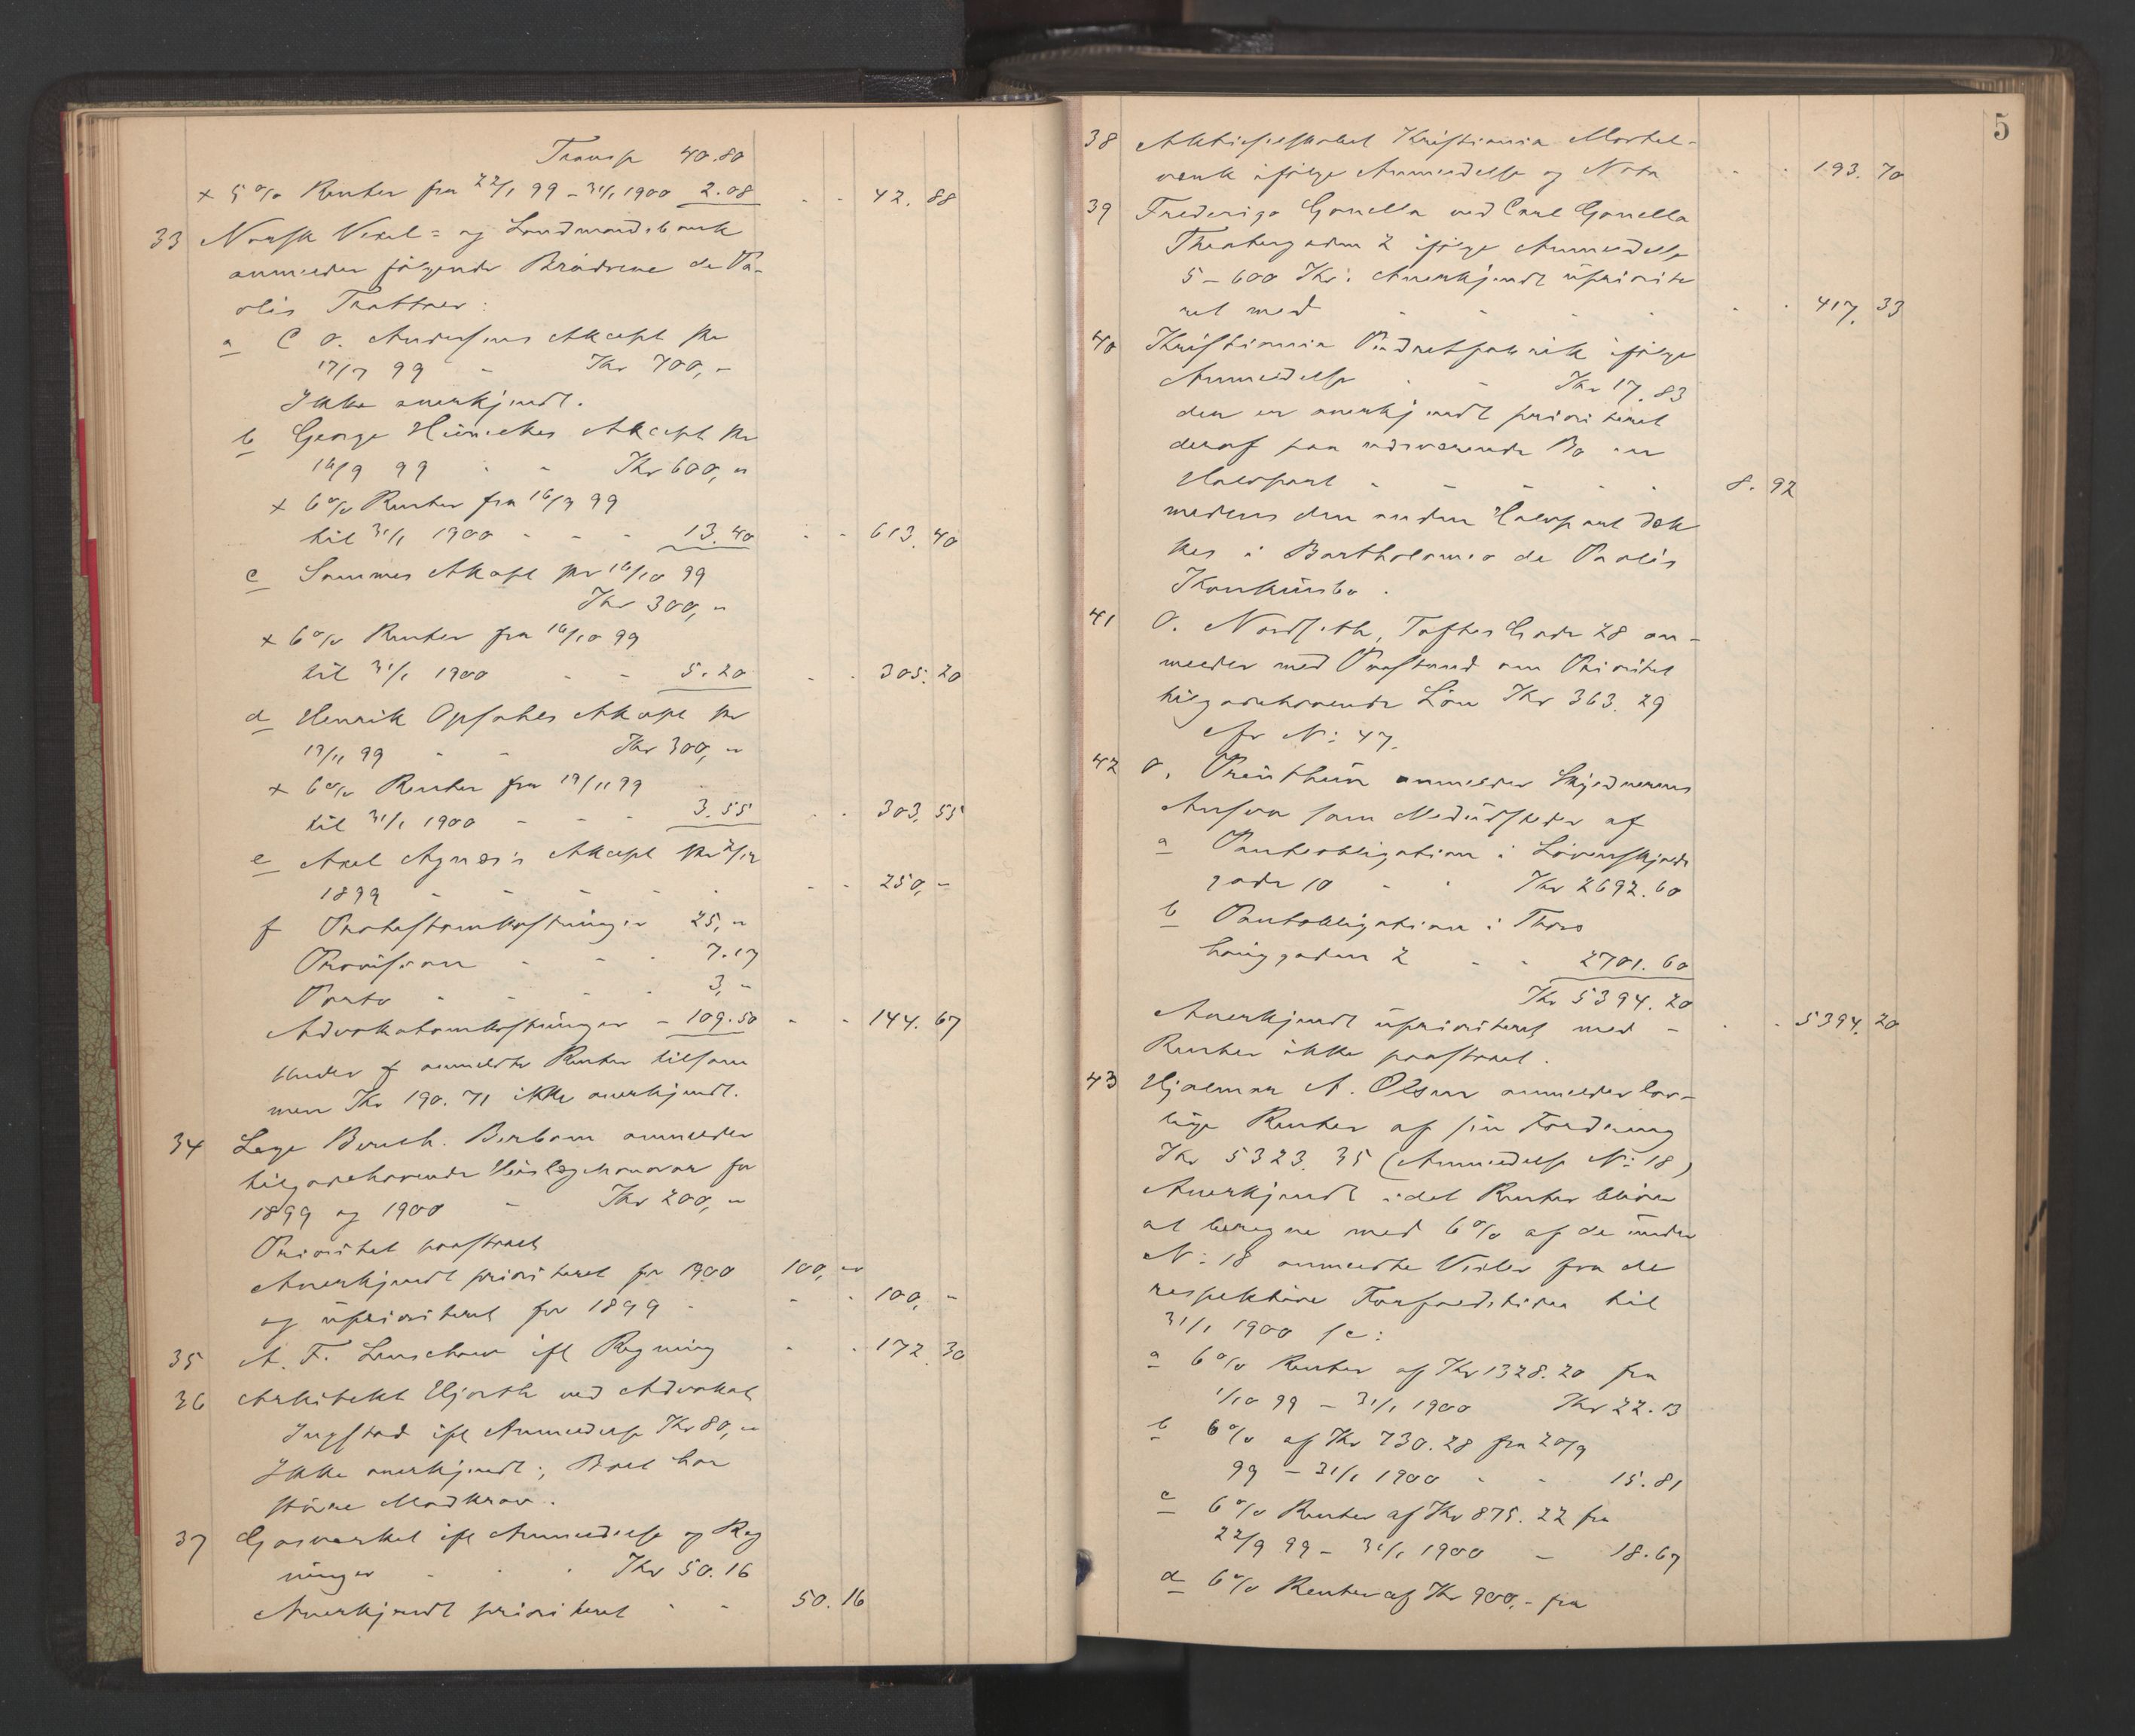 Transp 40.80
+ 5 % Renter fra 22/1 99 – 31/1 1900 2.08 - - 42.88
33 Norsk Vexel- og Landmandsbank
anmelder følgende Brødrene de Pa-
olis Tratter:
a C O. Andersens Akcept pr
17/7 99 - Kr 700,-
Ikke anerkjendt.
b George Hünickes Akcept pr
16/9 99 - - Kr 600,-
+ 6 % Renter fra 16/9 99
til 31/1 1900 - - - 13.40 - - 613.40
c Sammes Akcept pr 16/10 99
Kr 300,-
+ 6 % Renter fra 16/10 99
til 31/1 1900 - - 5.20 - - 305.20
d Henrik Opsahls Akcept pr
19/11 99 - - Kr 300,-
+ 6 % Renter fra 19/11 99
til 31/1 1900 - - - 3.55 - - 303.55
e Axel Agnæs's Akcept pr 2/12
1899 - - - - - - - 250,-
f Protestomkostninger 25,-
Provision - - - 7.17
Porto - - - - 3,-
Advokatomkostninger - 109.50 - - 144.67
Under f anmeldte Renter tilsam
men Kr 190.71 ikke anerkjendt.
34 Læge Bernh. Berbom anmelder
tilgodehavende Huslægehonorar for
1899 og 1900 - Kr 200,-
Prioritet paastaaet
Anerkjendt prioriteret for 1900 100,-
og uprioriteret for 1899 - - - 100,-
35 A. F. Lenschow ifl Regning - - 172.30
36 Arkitekt Hjorth ved Advokat
Ingstad ifl Anmeldelse Kr 80,-
Ikke anerkjendt; Boet har
større Modkrav.
37 Gasværket ifl Anmeldelse og Reg
ninger - - Kr 50.16
Anerkjendt prioriteret - - 50.16
5
38 Aktieselskabet Kristiania Mørtel-
værk ifølge Anmeldelse og Nota - - 193.70
39 Frederigo Gonella ved Carl Gonella
Theatergaden 2 ifølge Anmeldelse
5 – 600 Kr. Anerkjendt upriorite
ret med - - - - - - 417.33
40 Kristiania Pudretfabrik ifølge
Anmeldelse - - Kr 17.83
der er anerkjendt prioriteret
deraf paa nærværende Bo en
Halvpart - - - - - 8.92
medens den anden Halvpart dæk
kes i Bartholomeo de Paolis
Konkursbo.
41 O. Nordseth, Toftes Gade 28 an-
melder med Paastand om Prioritet
tilgodehavende Løn Kr 363.29
cfr No 47.
42 O. anmelder Skjødnerens
Ansvar som Medudsteder af
a Panteobligation i Løvenskjolds
gade 10 - - Kr 2692.60
b Pantobligation i Thors
haúggaden 2 - - 2701.60
Kr 5394.20
Anerkjendt uprioriteret med - - - 5394.20
Renter ikke paastaaet.
43 Hjalmar A. Olsen anmelder lov-
lige Renter af sin Fordring
Kr 5323.35 (Anmeldelse No 18)
Anerkjendt idet Renter bliver
at beregne med 6 % af de under
No 18 anmeldte Vexler fra de
respektive Forfaldstider til
31/1 1900 sc:
a 6 % Renter af Kr 1328.20 fra
1/10 99 – 31/1 1900 Kr 22.13
b 6 % af Kr 730.28 fra 20/9
99 – 31/1 1900 - - 15.81
c 6 % Renter af Kr 875.22 fra
22/9 99 – 31/1 1900 – 18.67
d 6 % Renter af Kr 900,- fra